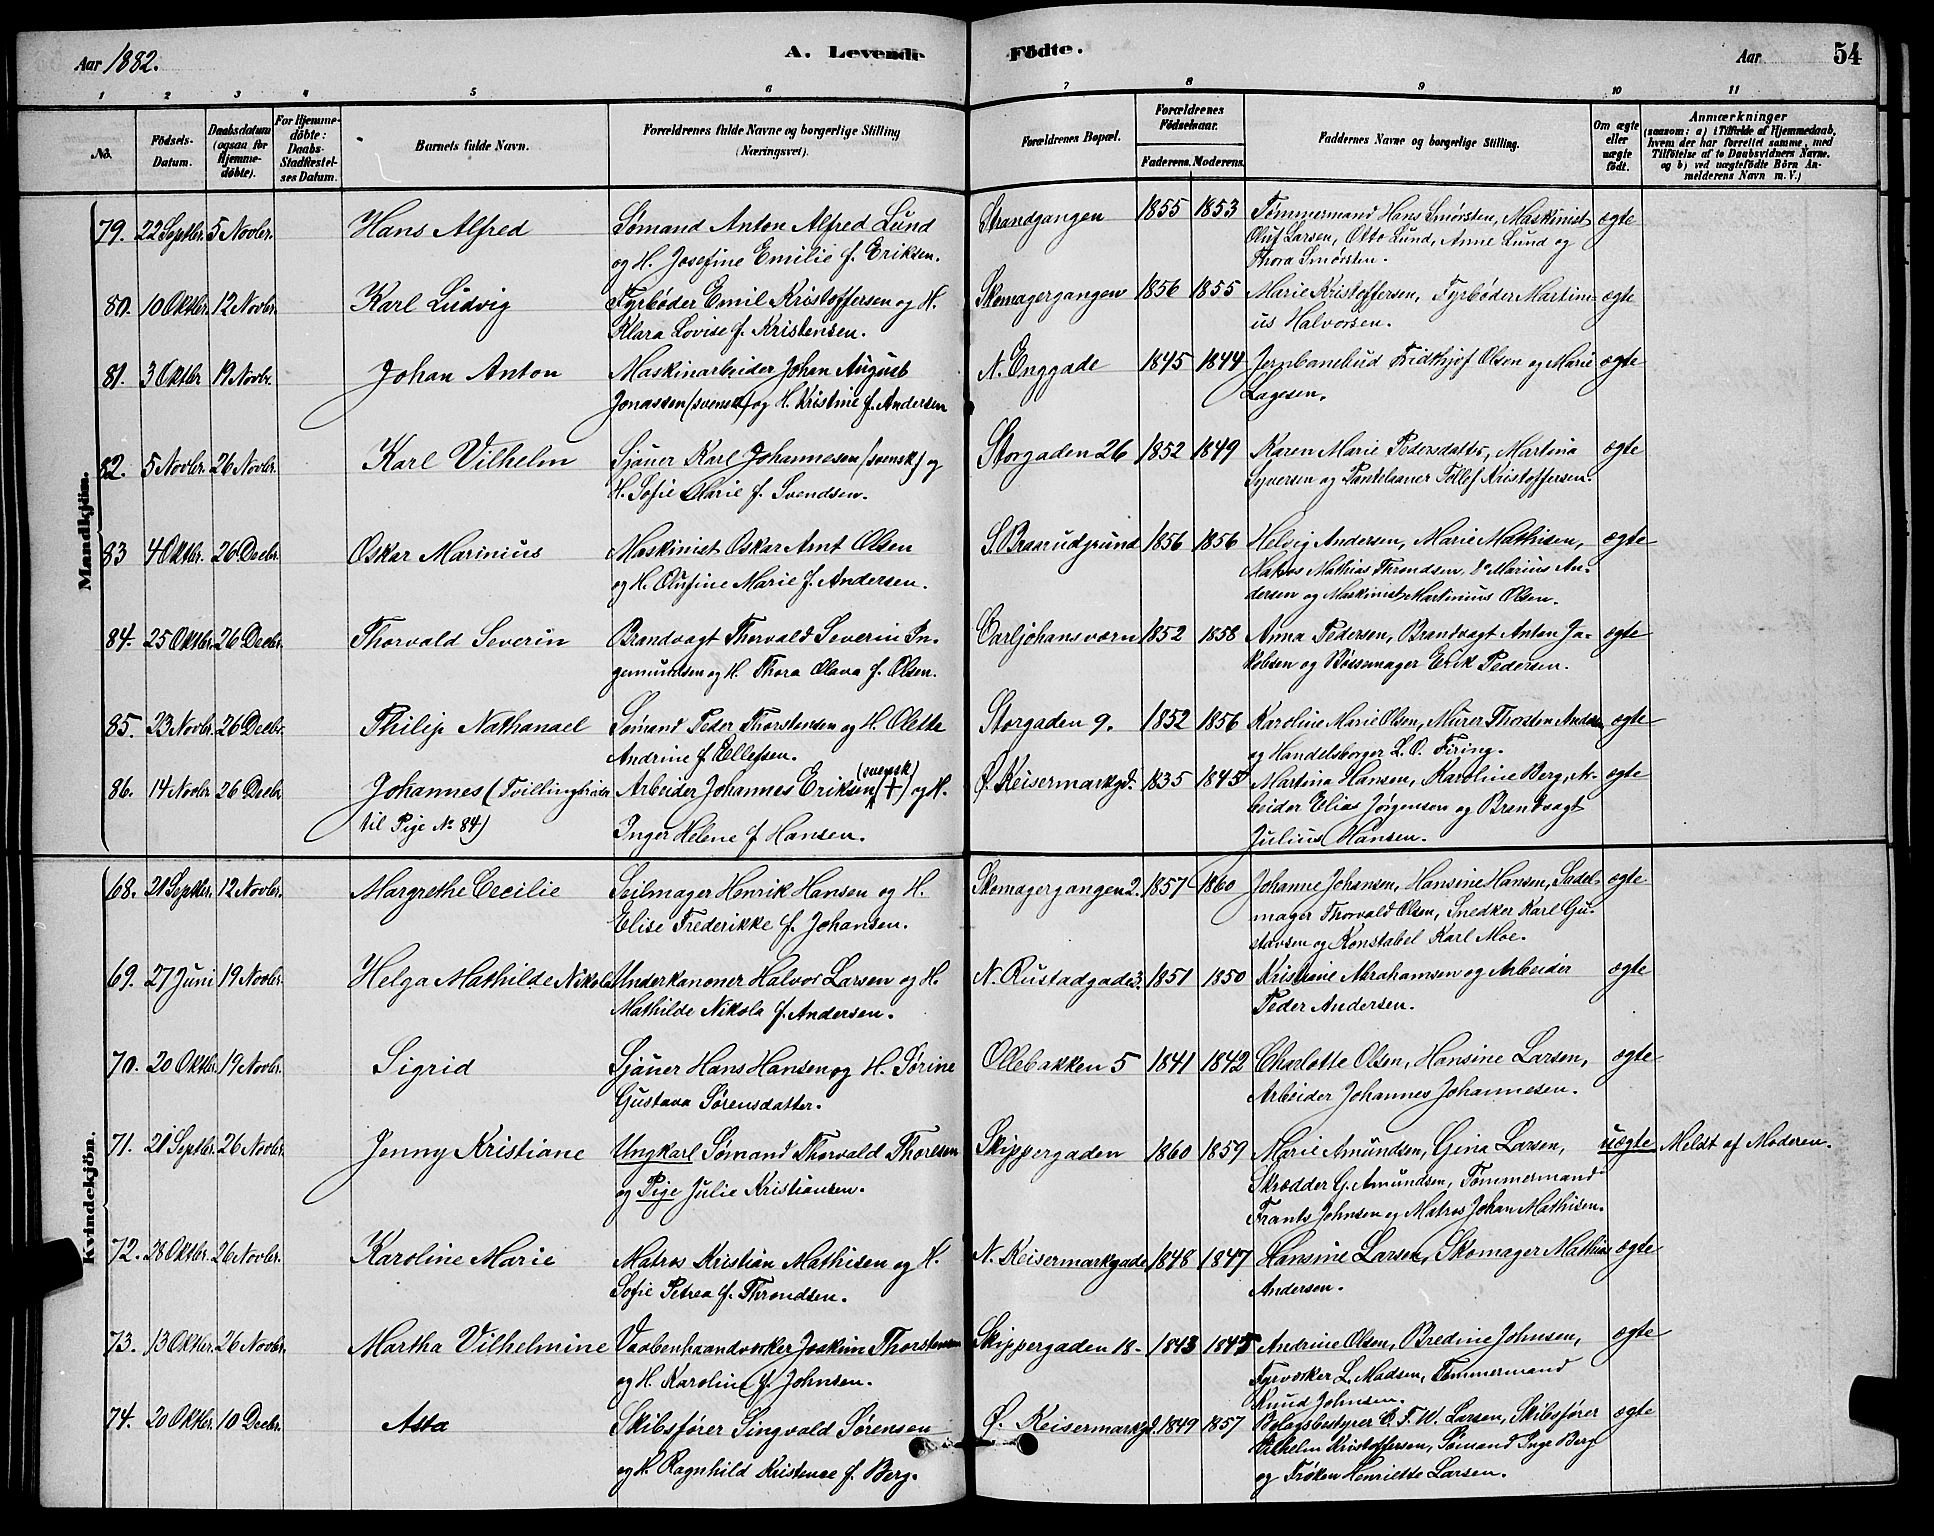 Aar 1882.
A. Levende
Födte.
Aar
54
1 2 3 4 5 6 7 8 9 10 11
No.
Födsels-Datum.
Daabsdatum (ogsaa for Hjemme-döbte).
For Hjemme-döbte: Daabs-Stadfæstel-ses Datum.
Barnets fulde Navn.
Forældrenes fulde Navne og borgerlige Stilling (Næringsvei).
Forældrenes Bopæl.
Forældrenes Födselsaar.
Faderens. Moderens.
Faddernes Navne og borgerlige Stilling.
Om ægte eller uægte födt.
Anmærkninger
(saasom: a) i Tilfælde af Hjemmedaab,
hvem der har forrettet samme, med
Tilföielse af to Daabsvidners Navne,
og b) ved uægtefödte Börn An-
melderens Navn m. V.)
Mandkjön.
79. 22 Septbr. 5 Novbr. Hans Alfred Sømand Anton Alfred Lund Strandgangen 1855 1853 Tømmermand Hans Smørsten, Maskinist ægte
og H. Josefine Emilie f. Eriksen. Oluf Larsen, Otto Lund, Anne Lund og
Thora Smørsten.
80. 10 Oktbr. 12 Novbr. Karl Ludvig Fyrbøder Emil Kristoffersen og H. Skomagergangen 1856 1855 Marie Kristoffersen, Fyrbøder Martin- ægte
Klara Lovise f. Kristensen. us Halvorsen.
81. 3 Oktbr 19 Novbr. Johan Anton Maskinarbeider Johan August N. Enggade 1845 1844 Jernbanebud Fridthjof Olsen og Marie ægte
Jonassen (svensk) og H. Kristine f. Andersen Lagesen.
82. 5 Novbr. 26 Novbr. Karl Vilhelm Sjauer Karl Johannesen (svensk) og Storgaden 26 1852 1849 Karen Marie Pedersdatter, Martina ægte
H. Sofie Marie f. Svendsen. Syversen og Pantelaaner Tollef Kristoffersen.
83 4 Oktbr. 26 Decbr. Oskar Marinius Maskinist Oskar Amt Olsen S. Braarudgrund 1856 1856 Helvig Andersen, Marie Mathisen, ægte
og H. Olufine Marie f. Andersen. Matros Mathias Throndsen, do Marius An-
dersen og Maskinist Martinius Olsen.
84. 25 Oktbr. 26 Decbr. Thorvald Severin Brandvagt Thorvald Severin In- Carljohansværn 1852 1858 Anna Pedersen, Brandvagt Anton Ja- ægte
gemundsen og H. Thora Olava f. Olsen. kobsen og Bøssemager Erik Pedersen.
85. 23 Novbr. 26 Decbr. Philip Nathanael Sømand Peder Thorstensen og H. Olette Storgaden 9. 1852 1856 Karoline Marie Olsen, Murer Thorsten Anders ægte
Andrine f. Ellefsen. og Handelsborger L. O. Firing.
86. 14 Novbr 26 Decbr. Johannes (Tvillingbroder Arbeider Johannes Eriksen (svensk) (+) og H. Ø. Keisermarkgd. 1835 1845 Martina Hansen, Karoline Berg, Ar- ægte
til Pige No 84) Inger Helene f. Hansen. beider Elias Jørgensen og Brandvagt
Julius Hansen.
Kvindekjön.
68. 21 Septbr. 12 Novbr. Margrethe Cecilie Seilmager Henrik Hansen og H. Skomagergangen 2. 1857 1860 Johanne Johansen, Hansine Hansen, Sadel- ægte
Elise Frederikke f. Johansen. mager Thorvald Olsen, Snedker Karl Gu-
stavsen og Konstabel Karl Moe.
69. 27 Juni 19 Novbr. Helga Mathilde Nikola Underkanoner Halvor Larsen og H. N. Rustadgade 3. 1851 1850 Kristine Abrahamsen og Arbeider ægte
Mathilde Nikola f. Andersen. Peder Andersen.
70. 20 Oktbr. 19 Novbr. Sigrid Sjauer Hans Hansen og H. Sørine Ollebakken 5 1841 1842 Charlotte Olsen, Hansine Larsen, ægte
Gustava Sørensdatter. Arbeider Johannes Johannesen.
71. 21 Septbr. 26 Novbr. Jenny Kristiane Ungkarl Sømand Thorvald Thoresen Skippergaden 1860 1859 Marie Amundsen, Gina Larsen, uægte Meldt af Moderen.
og Pige Julie Kristiansen. Skrædder G. Amundsen, Tømmermand
Frants Johnsen og Matros Johan Mathisen.
72. 28 Oktbr. 26 Novbr. Karoline Marie Matros Kristian Mathisen og H. N. Keisermarkgade 1848 1847 Hansine Larsen, Skomager Mathias ægte
Sofie Petrea f. Throndsen. Andersen.
73. 13 Oktbr. 26 Novbr. Martha Vilhelmine Vaabenhaandverker Joakim Thorstensen Skippergaden 18 1843 1845 Andrine Olsen, Bredine Johnsen, ægte
og H. Karoline f. Johnsen. Fyrverker L. Madsen, Tømmermand
Knud Johnsen.
74. 20 Oktbr. 10 Decbr. Asta Skibsfører Singvald Sørensen Ø. Keisermarkgd. 1849 1857 Bolagsbestyrer C. F. W. Larsen, Skibsfører ægte
og H. Ragnhild Kristense f. Berg. Vilhelm Kristoffersen, Sømand Inge Berg
og Frøken Henriette Larsen.